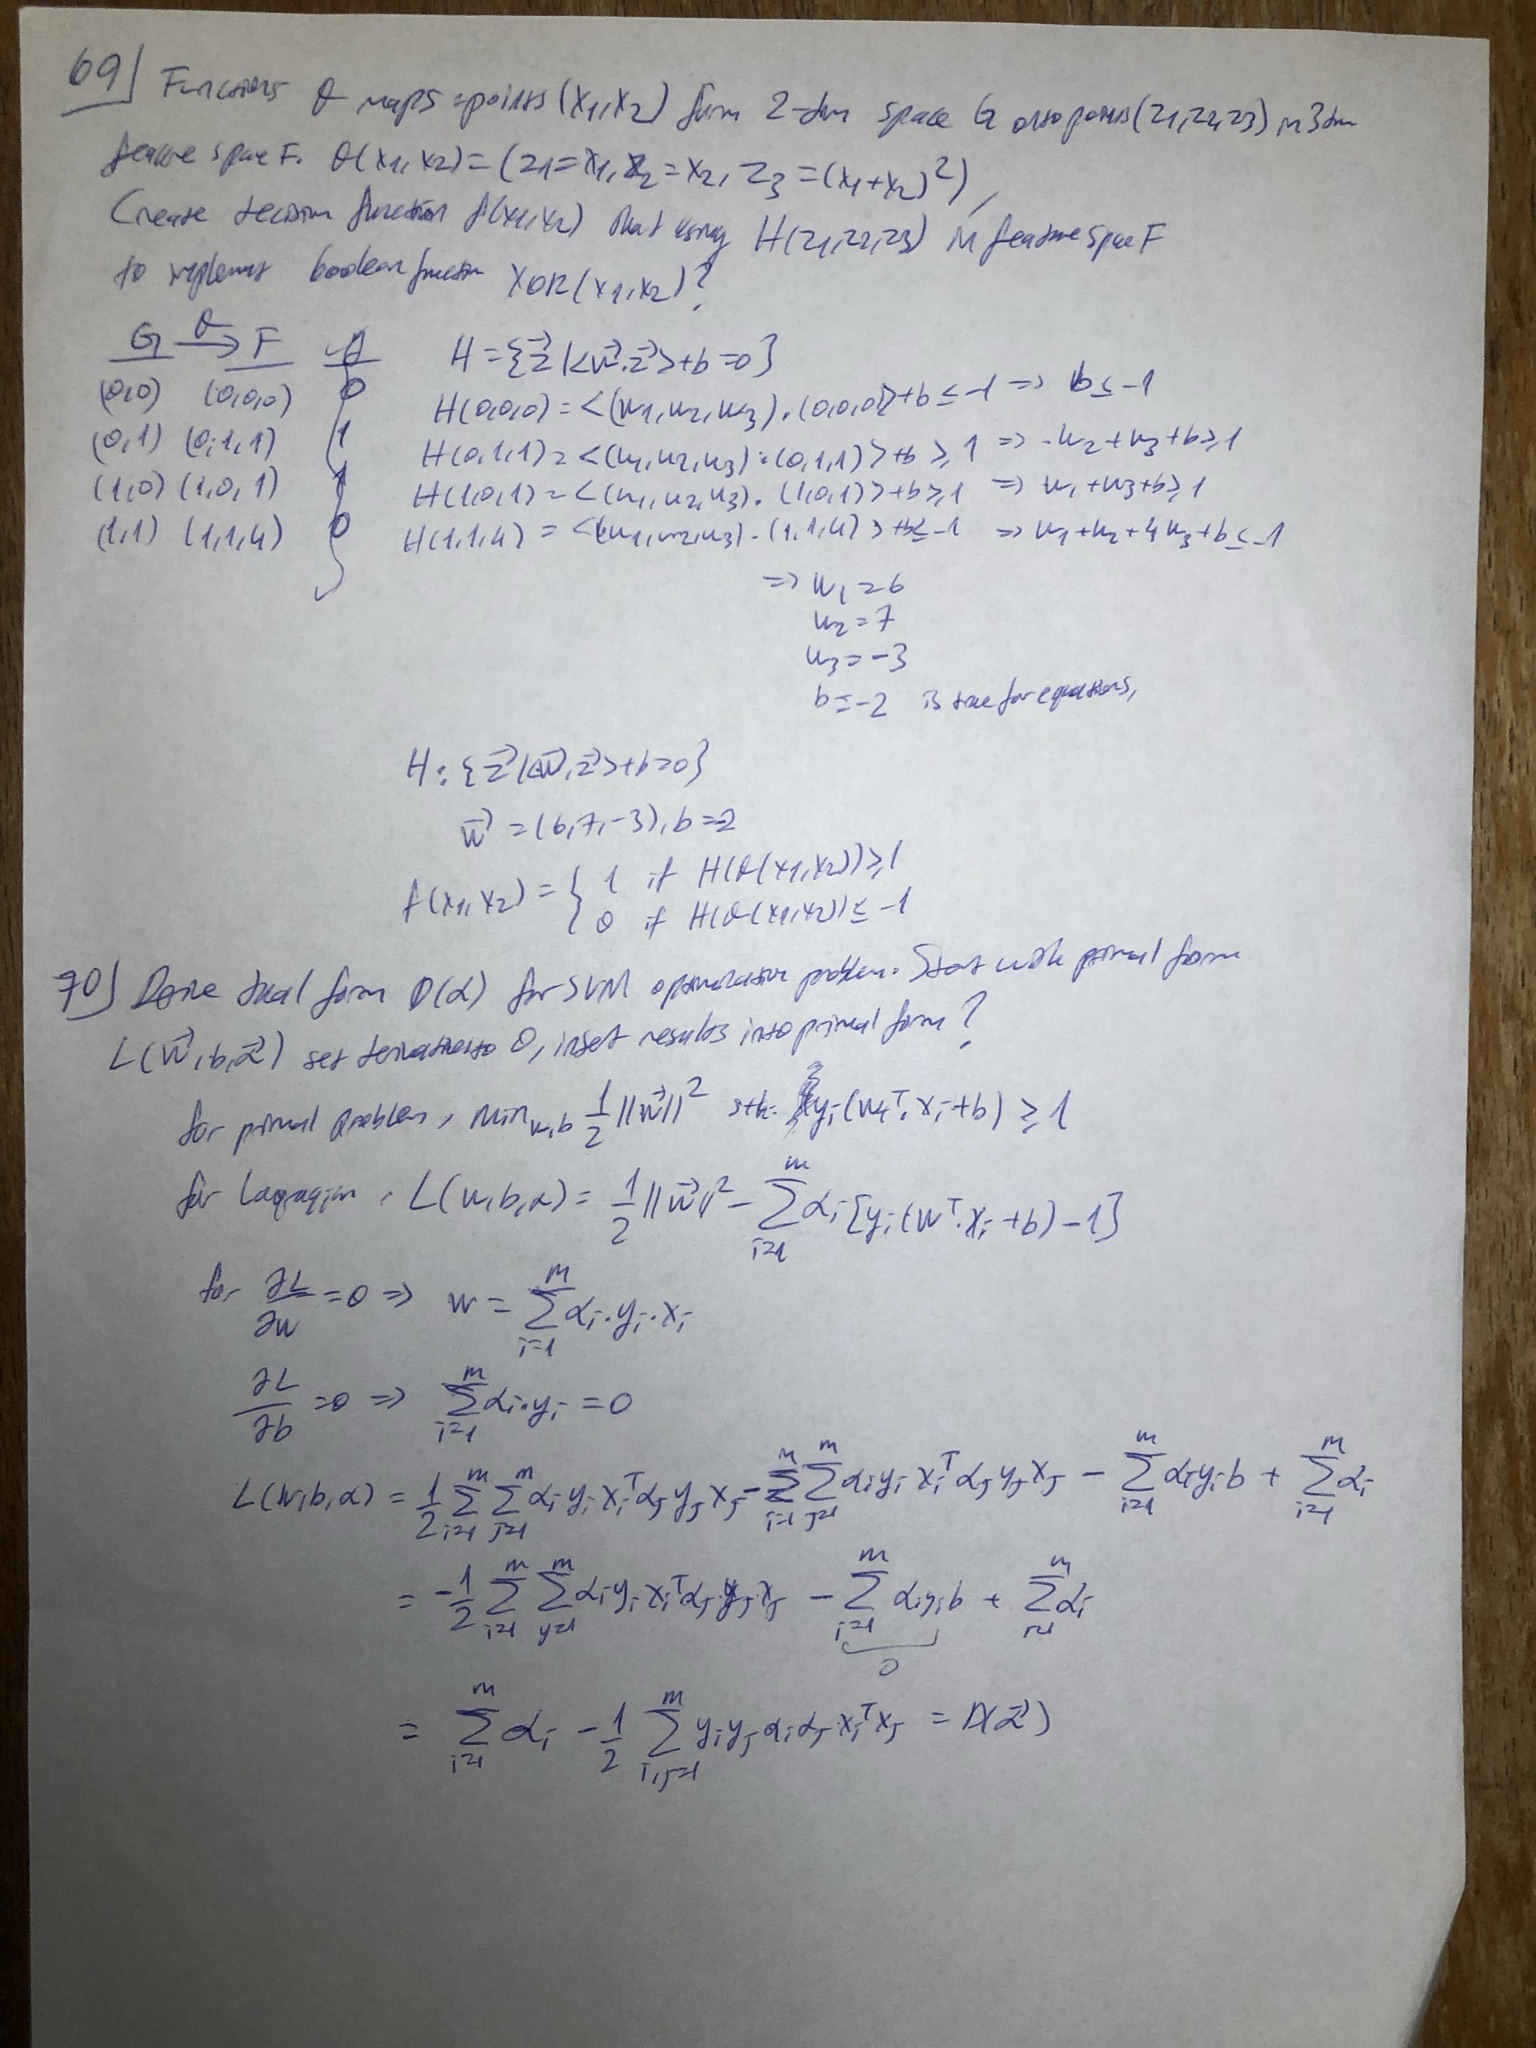 69) Functions θ maps points (x1,x2) form 2-dim space G onto points (z1,z2,z3) in 3dim
feature space F. θ(x1,x2)=(z1=x1, z2=x2, z3=(x1+x2)²),
Create decision function f(x1,x2) that using H(z1,z2,z3) in feature space F
to implement boolean function XOR(x1,x2)?
G →θ F f
H={z⃗|<w⃗.z⃗>+b=0}
(0,0) (0,0,0) 0
H(0,0,0)=<(w1,w2,w3).(0,0,0)>+b≤-1 => b≤-1
(0,1) (0,1,1) 1
H(0,1,1)=<(w1,w2,w3).(0,1,1)>+b≥1 => w2+w3+b≥1
(1,0) (1,0,1) 1
H(1,0,1)=<(w1,w2,w3).(1,0,1)>+b≥1 => w1+w3+b≥1
(1,1) (1,1,4) 0
H(1,1,4)=<(w1,w2,w3).(1,1,4)>+b≤-1 => w1+w2+4w3+b≤-1
=> w1=6
w2=7
w3=-3
b=-2 is true for equations,
H:{z⃗|<w⃗,z⃗>+b=0}
w⃗=(6,7,-3), b=-2
f(x1,x2)={ 1 if H(θ(x1,x2))≥1
0 if H(θ(x1,x2))≤-1
70) Derive dual form D(α) for SVM optimization problem. Start with primal form
L(w⃗,b,α⃗) set derivatives to 0, insert results into primal form?
for primal problem, min w,b 1/2 ||w⃗||² yi(wT.xi+b) ≥1
for Lagragian, L(w,b,α)= 1/2 ||w⃗||² - Σ i=1 m αi[yi(wT.xi+b)-1]
for ∂L/∂w =0 => w= Σ i=1 m αi.yi.xi
∂L/∂b =0 => Σ i=1 m αi.yi =0
L(w,b,α) = 1/2 Σ i=1 m Σ j=1 m αi yi xiT αj yj xj - Σ i=1 m Σ j=1 m αi yi xiT αj yj xj - Σ i=1 m αi yi b + Σ i=1 m αi
= -1/2 Σ i=1 m Σ y=1 m αi yi xiT αj yj xj - Σ i=1 m αi yi b + Σ i=1 m αi
0
= Σ i=1 m αi - 1/2 Σ i,j=1 m yi yj αi αj xiT xj = D(α⃗)